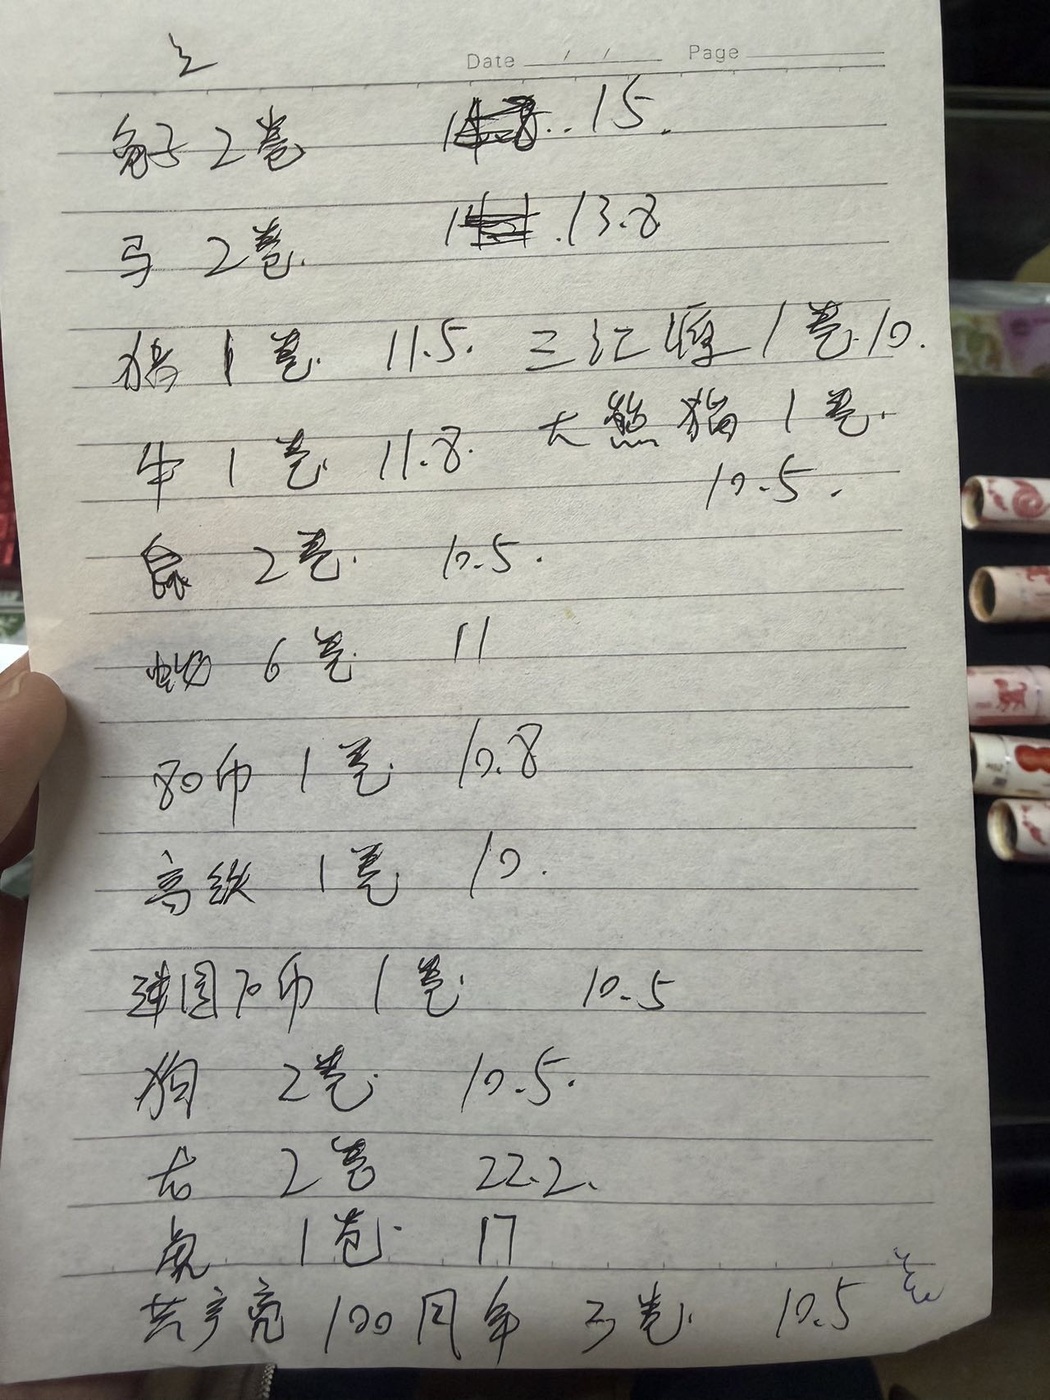 Date / / Page
兔子 2卷 15.
马 2卷. 13.8
猪 1卷. 11.5. 三江源 1卷.10.
牛 1卷. 11.8. 大熊猫 1卷.
10.5.
鼠 2卷. 10.5.
6卷 11
80币 1卷. 10.8
高铁 1卷 10.
建国70币 1卷. 10.5
狗 2卷. 10.5.
龙 2卷 22.2.
虎 1卷. 17
共产党 100周年 3卷. 10.5